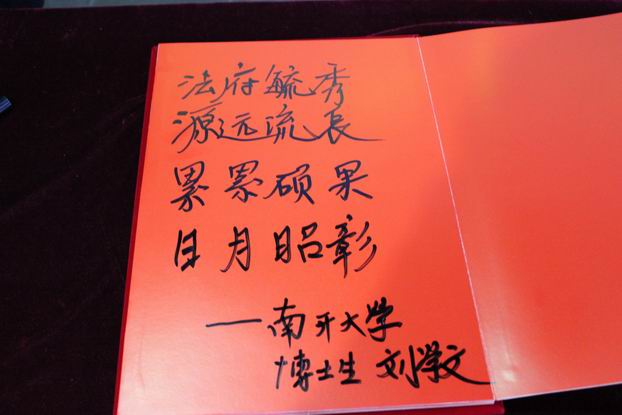 法府毓秀
源远流长
累累硕果
日月昭彰
——南开大学
博士生 刘学文